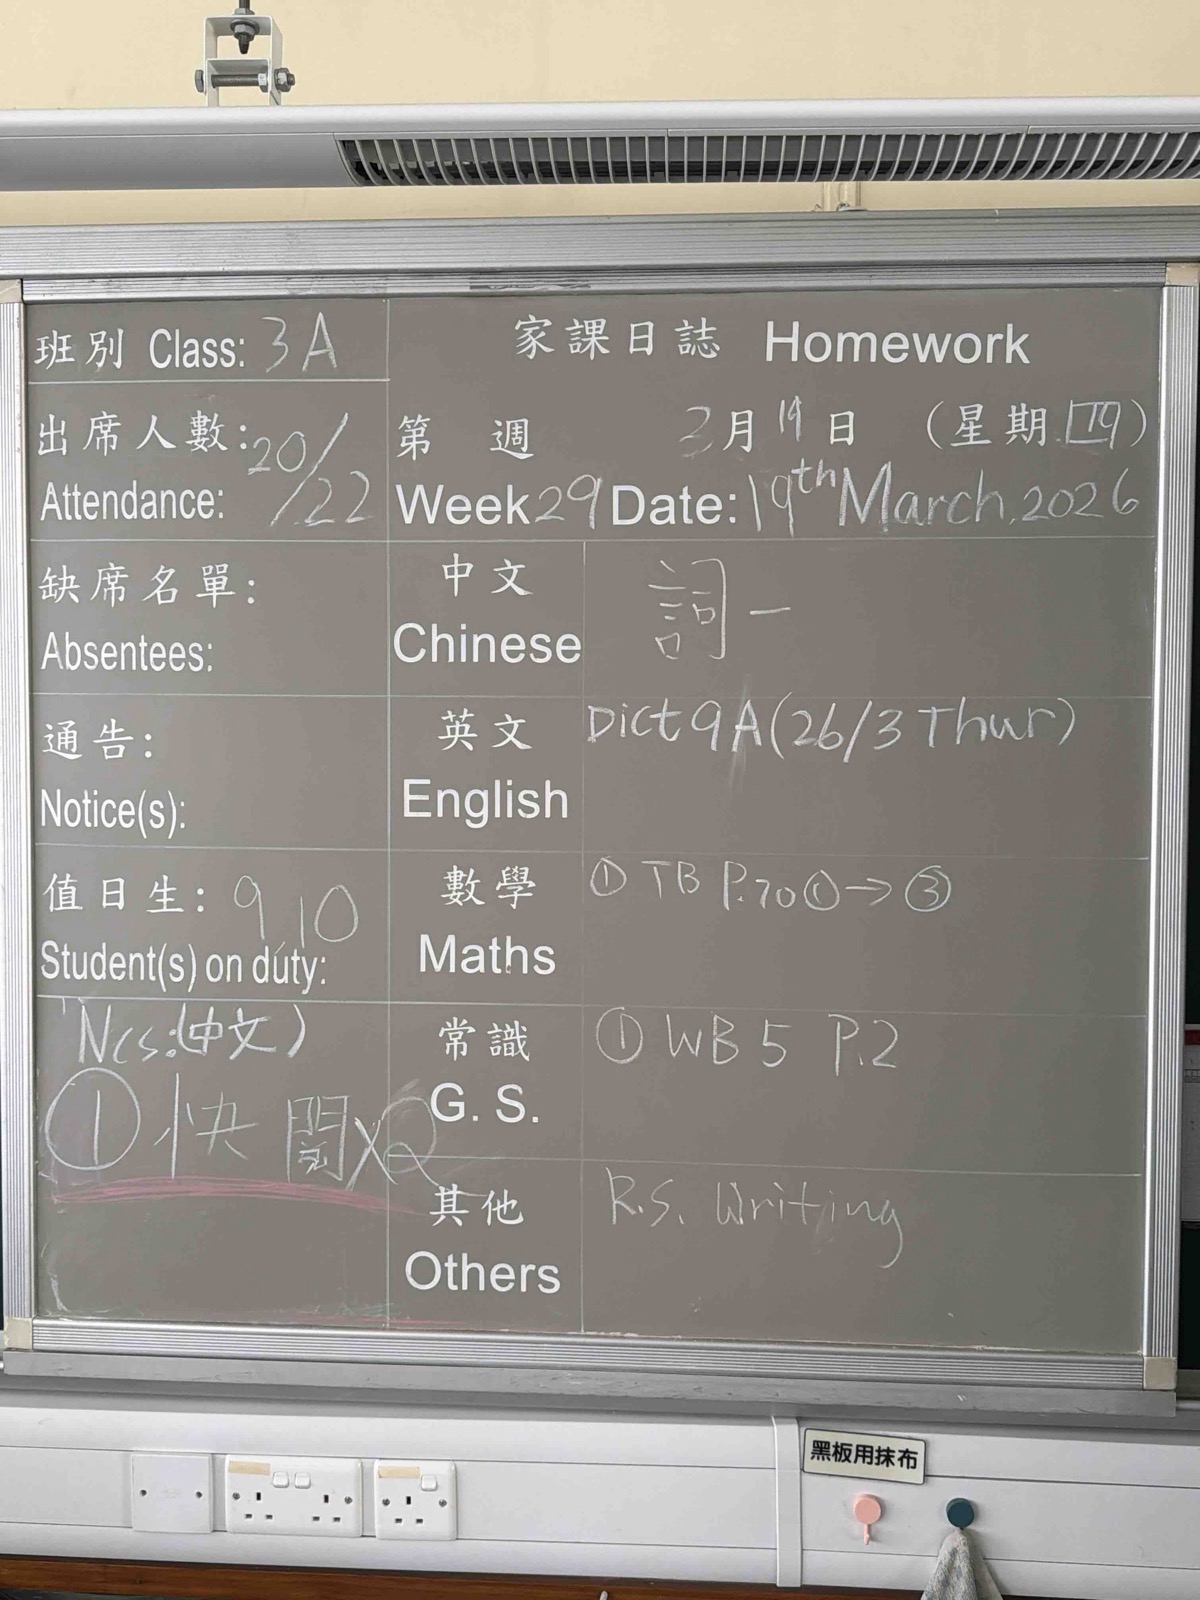 班別 Class: 3A
家課日誌 Homework
出席人數: 20/22
Attendance:
第 週 3月19日 (星期四)
Week 29 Date: 19th March, 2026
缺席名單:
Absentees:
中文
Chinese
詞一
通告:
Notice(s):
英文
English
Dict 9A (26/3 Thur)
值日生: 9 10
Student(s) on duty:
數學
Maths
① TB P.70 ① → ③
Ncs: (中文)
① 快閱x2
常識
G. S.
① WB 5 P.2
其他
Others
R.S. Writing
黑板用抹布